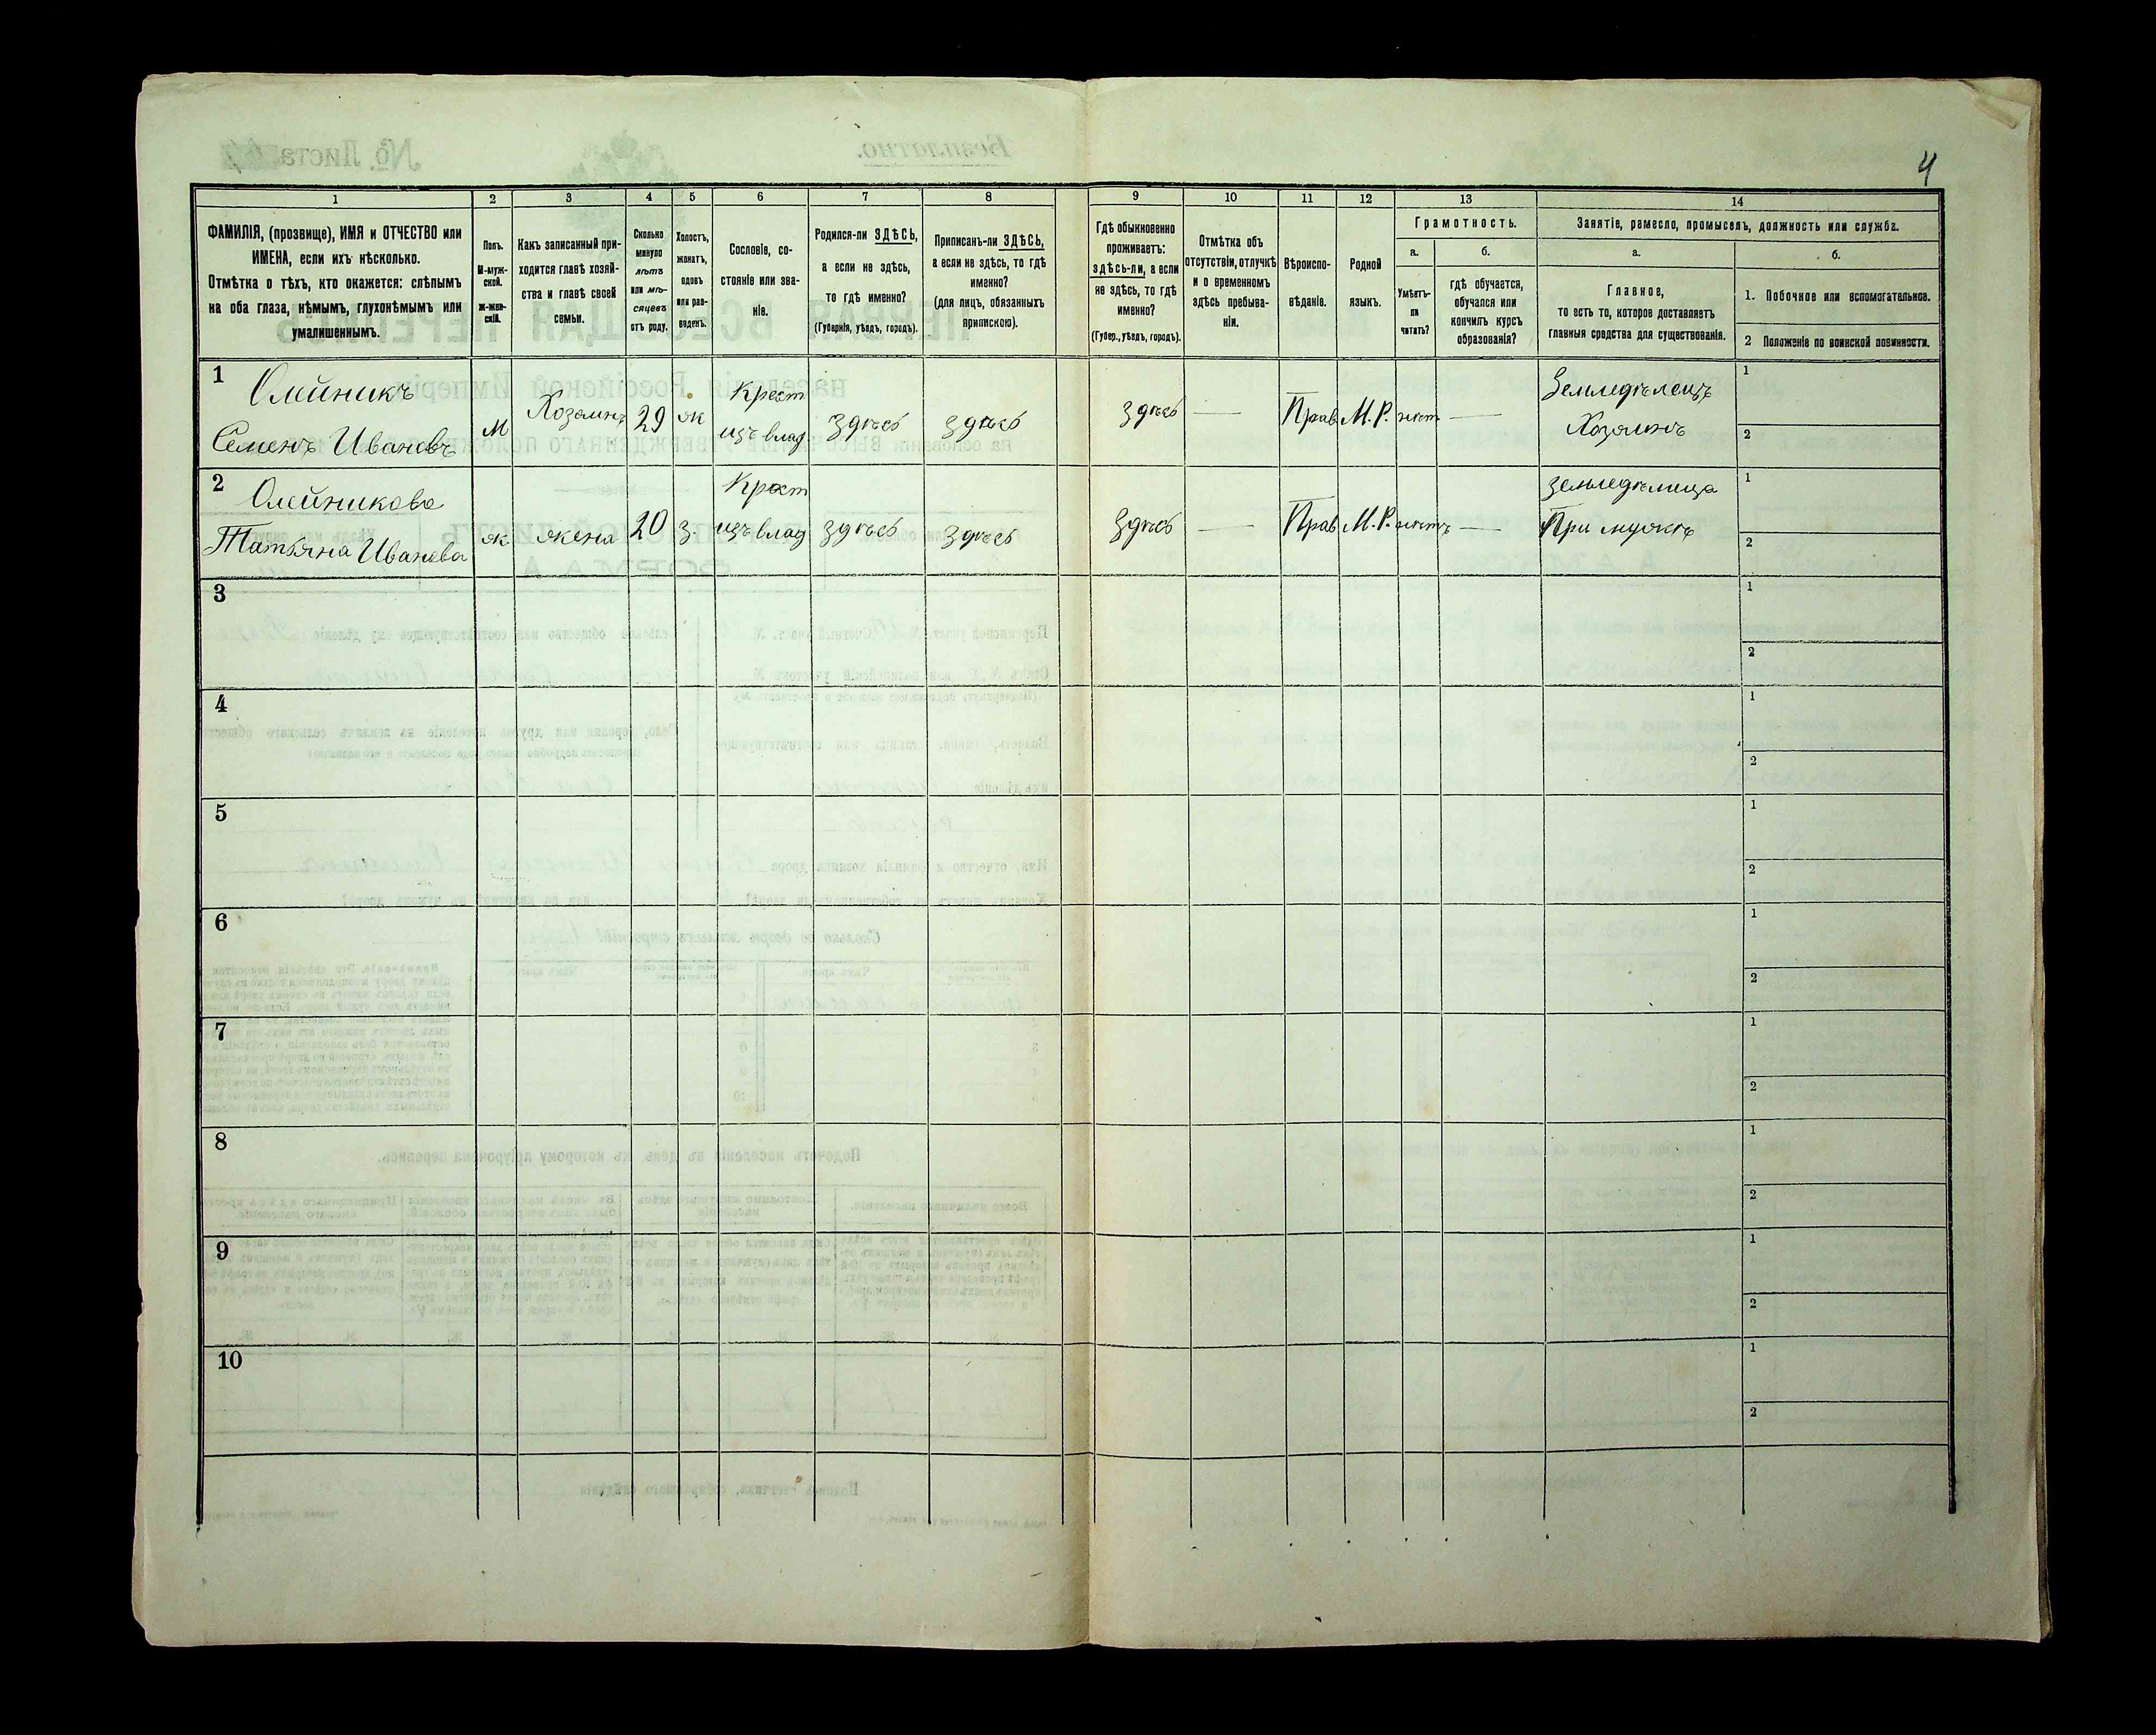 4
1
2
3
4
5
6
7
8
9
10
11
12
13
14
ФАМИЛІЯ, (прозвище), ИМЯ и ОТЧЕСТВО или
ИМЕНА, если ихъ нѣсколько.
Отмѣтка о тѣхъ, кто окажется: слѣпымъ
на оба глаза, нѣмымъ, глухонѣмымъ или
умалишеннымъ.
Полъ.
М-муж-
ской.
Ж-жен-
скій.
Какъ записанный при-
ходится главѣ хозяй-
ства и главѣ своей
семьи.
Сколько
минуло
лѣтъ
или мѣ-
сяцевъ
отъ роду.
Холостъ,
женатъ,
вдовъ
или раз-
веденъ.
Сословіе, со-
стояніе или зва-
ніе.
Родился-ли ЗДѢСЬ,
а если не здѣсь,
то гдѣ именно?
(Губернія, уѣздъ, городъ).
Приписанъ-ли ЗДѢСЬ,
а если не здѣсь, то гдѣ
именно?
(для лицъ, обязанныхъ
припискою).
Гдѣ обыкновенно
проживаетъ:
здѣсь-ли, а если
не здѣсь, то гдѣ
именно?
(Губер., уѣздъ, городъ).
Отмѣтка объ
отсутствіи, отлучкѣ
и о временномъ
здѣсь пребыва-
ніи.
Вѣроиспо-
вѣданіе.
Родной
языкъ.
Грамотность.
а.
Умѣетъ-
ли
читать?
б.
гдѣ обучается,
обучался или
кончилъ курсъ
образованія?
Занятіе, ремесло, промыселъ, должность или служба.
а.
Главное,
то есть то, которое доставляетъ
главныя средства для существованія.
б.
1. Побочное или вспомогательное.
2 Положеніе по воинской повинности.
1
Олейникъ
Семенъ Ивановъ
м
Хозяинъ
29
ж
Крест
изъ влад.
здѣсь
здѣсь
здѣсь
—
Прав
М.Р.
нѣт
—
Земледѣлецъ
Хозяинъ
1
2
2
Олейникова
Татьяна Иванова
ж
жена
20
з.
Крест
изъ влад
здѣсь
здѣсь
здѣсь
—
Прав
М.Р.
нѣтъ
—
земледѣлица
При мужѣ
1
2
3
1
2
4
1
2
5
1
2
6
1
2
7
1
2
8
1
2
9
1
2
10
1
2